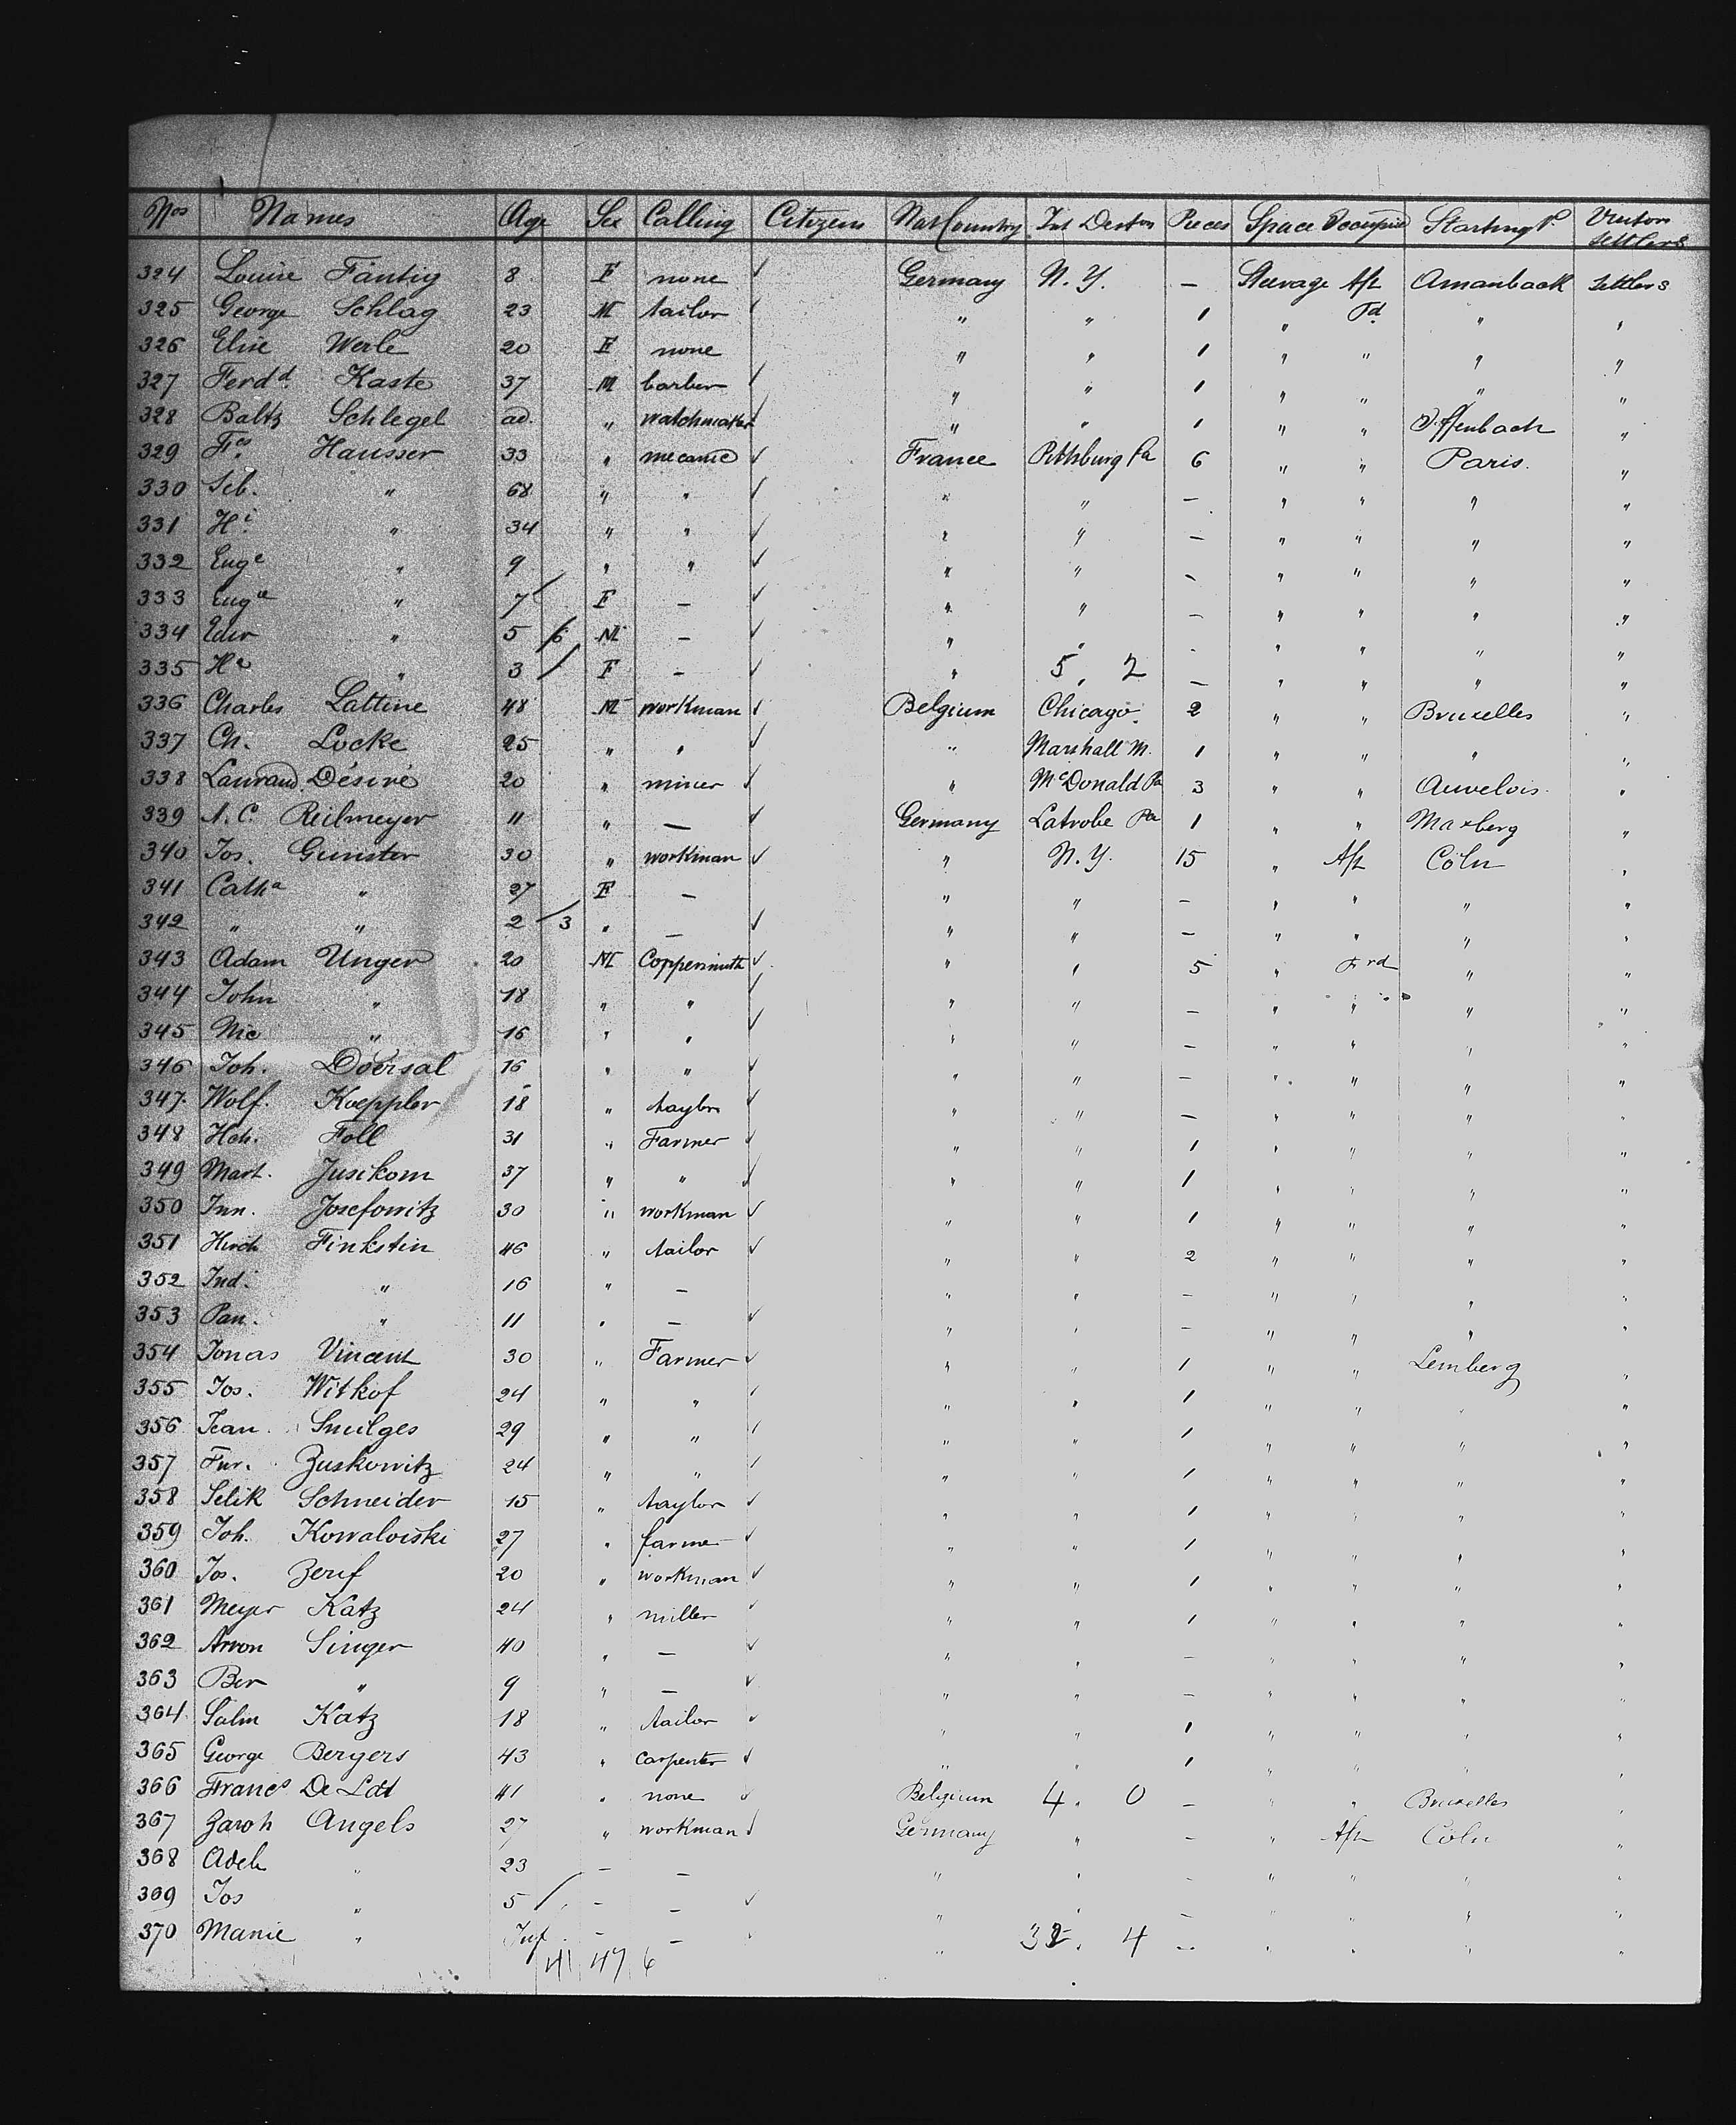 Nos Names Age Sex Calling Citizen Nat Country Int Deston Pieces Space Occupied Starting P. Visitors Settlers
324 Louise Fäntig 8 F none ✓ Germany N.Y. — Steerage Aft Amanback Settlers
325 George Schlag 23 M tailor ✓ " " 1 " Fd " "
326 Elise Werle 20 F none " " 1 " " " "
327 Ferdd. Kaste 37 M barber ✓ " " 1 " " " "
328 Baltz Schlegel ad. " watchmaker ✓ " " 1 " " Offenbach "
329 Fcs. Hausser 33 " mecanic ✓ France Pittsburg Pa 6 " " Paris. "
330 Seb. " 68 " " ✓ " " — " " " "
331 Hi. " 34 " " ✓ " " — " " " "
332 Euge " 9 " " ✓ " " — " " " "
333 Eugie " 7 / F — ✓ " " — " " " "
334 " 5 / 6 M — ✓ " " - " " " "
335 He " 3 / F — ✓ " 5 " 2 — " " " "
336 Charles Lattine 48 M workman ✓ Belgium Chicago. 2 " " Bruxelles "
337 Ch. Locke 25 " " ✓ " Marshall M. 1 " " " "
338 Laurand Désiré 20 " miner ✓ " McDonald Pa 3 " " Auvelois "
339 A. C. Reilmeyer 11 " — ✓ Germany Latrobe Pa 1 " " Maxberg "
340 Jos. Gunster 30 " workman ✓ " N.Y. 15 " Aft Cöln "
341 Catha " 27 F — " " — " " " "
342 " " 2 / 3 " — ✓ " " — " " " "
343 Adam Unger 20 M Coppersmith ✓ " " 5 " Frd " "
344 John " 18 " " ✓ " " — " " " "
345 Nic " 16 " " ✓ " " — " " " "
346 Joh. Doersal 16 " " ✓ " " — " " " "
347. Wolf. Koeppler 18 " taylor ✓ " " — " " " "
348 Hch. Foll 31 " Farmer ✓ " " 1 " " " "
349 Mart. Jusikom 37 " " ✓ " " 1 " " " "
350 Inn. Josefowitz 30 " workman ✓ " " 1 " " " "
351 Hirch Finkstin 46 " tailor ✓ " " 2 " " " "
352 Ind. " 16 " — " " — " " " "
353 Pan. " 11 " — ✓ " " — " " " "
354 Jonas Vincent 30 " Farmer ✓ " " 1 " " Lemberg "
355 Jos. Witkof 24 " " ✓ " " 1 " " " "
356 Jean Smilges 29 " " ✓ " " 1 " " " "
357 Fur. Zuskowitz 24 " " ✓ " " 1 " " " "
358 Selik Schneider 15 " taylor ✓ " " 1 " " " "
359 Joh. Kowalowski 27 " farmer ✓ " " 1 " " " "
360 Jos. Zeruf 20 " workman ✓ " " 1 " " " "
361 Meyer Katz 24 " miller ✓ " " 1 " " " "
362 Arvon Singer 40 " — ✓ " " — " " " "
363 Ber " 9 " — ✓ " " — " " " "
364 Salm Katz 18 " tailor ✓ " " 1 " " " "
365 George Bergers 43 " carpenter ✓ " " 1 " " " "
366 Francs De Ldt 41 " none ✓ Belgium 4 " 0 — " " Bruxelles "
367 Zaroh Angels 27 " workman ✓ Germany " — " Aft Cöln "
368 Adele " 23 — — " " - " " " "
369 Jos " 5 / - — ✓ " " — " " " "
370 Manie " Inf. - — " 32 " 4 — " " " "
41 47 6